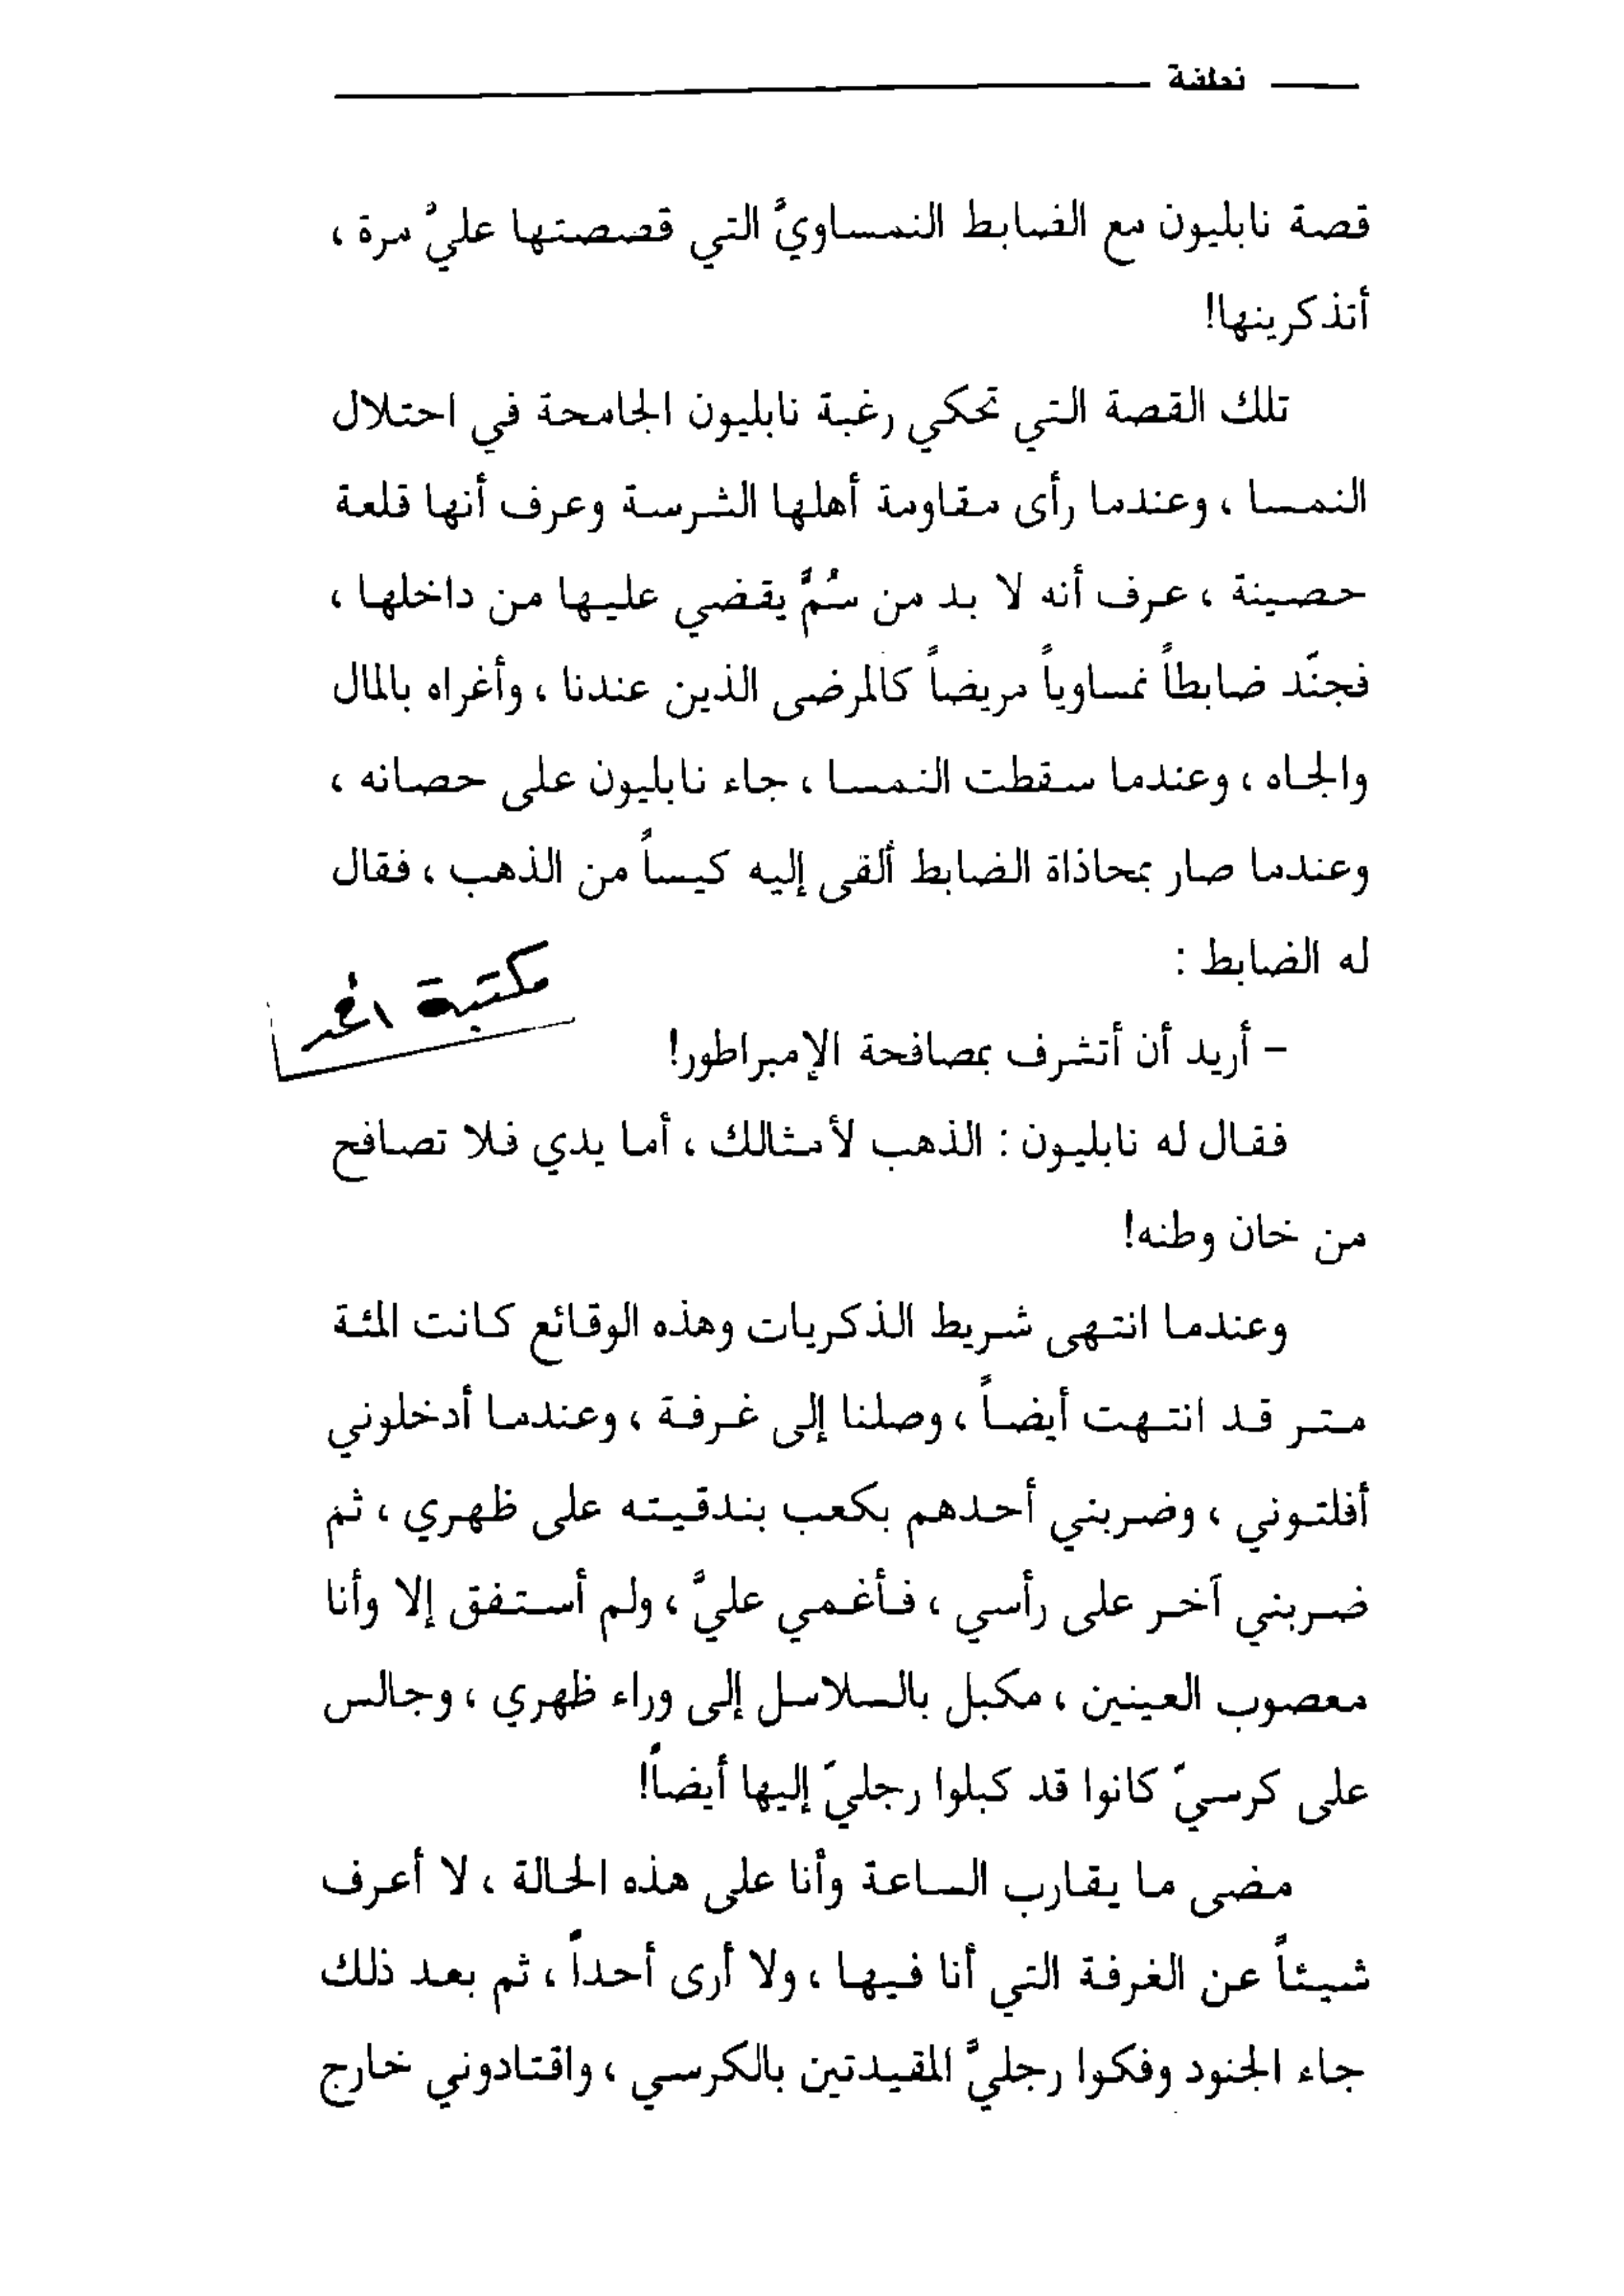 نطفة
قصة نابليون مع الضابط النمساويِّ التي قصصتها عليَّ مرة ،
أتذكرينها!
تلك القصة التي تحكي رغبة نابليون الجامحة في احتلال
النمسا ، وعندما رأى مقاومة أهلها الشرسة وعرف أنها قلعة
حصينة ، عرف أنه لا بد من سُمٍّ يقضي عليها من داخلها ،
فجنّد ضابطاً نمساوياً مريضاً كالمرضى الذين عندنا ، وأغراه بالمال
والجاه ، وعندما سقطت النمسا ، جاء نابليون على حصانه ،
وعندما صار بمحاذاة الضابط ألقى إليه كيساً من الذهب ، فقال
له الضابط :
مكتبة
– أريد أن أتشرف بمصافحة الإمبراطور!
فقال له نابليون : الذهب لأمثالك ، أما يدي فلا تصافح
من خان وطنه!
وعندما انتهى شريط الذكريات وهذه الوقائع كانت المئة
متر قد انتهت أيضاً ، وصلنا إلى غرفة ، وعندما أدخلوني
أفلتوني ، وضربني أحدهم بكعب بندقيته على ظهري ، ثم
ضربني آخر على رأسي ، فأغمي عليَّ ، ولم أستفق إلا وأنا
معصوب العينين ، مكبل بالسلاسل إلى وراء ظهري ، وجالس
على كرسيّ كانوا قد كبلوا رجليّ إليها أيضاً!
مضى ما يقارب الساعة وأنا على هذه الحالة ، لا أعرف
شيئاً عن الغرفة التي أنا فيها ، ولا أرى أحداً ، ثم بعد ذلك
جاء الجنود وفكوا رجليَّ المقيدتين بالكرسي ، واقتادوني خارج